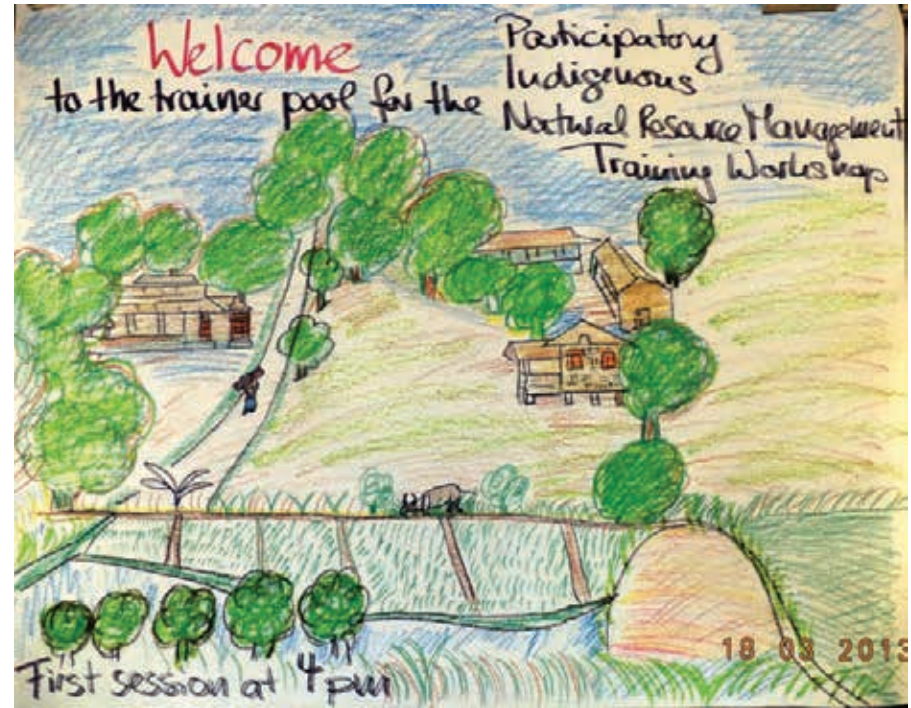 Welcome
to the trainer pool for the
Participatory
Indigenous
Natural Resource Management
Training Workshop
First session at 4 pm
18 03 2013